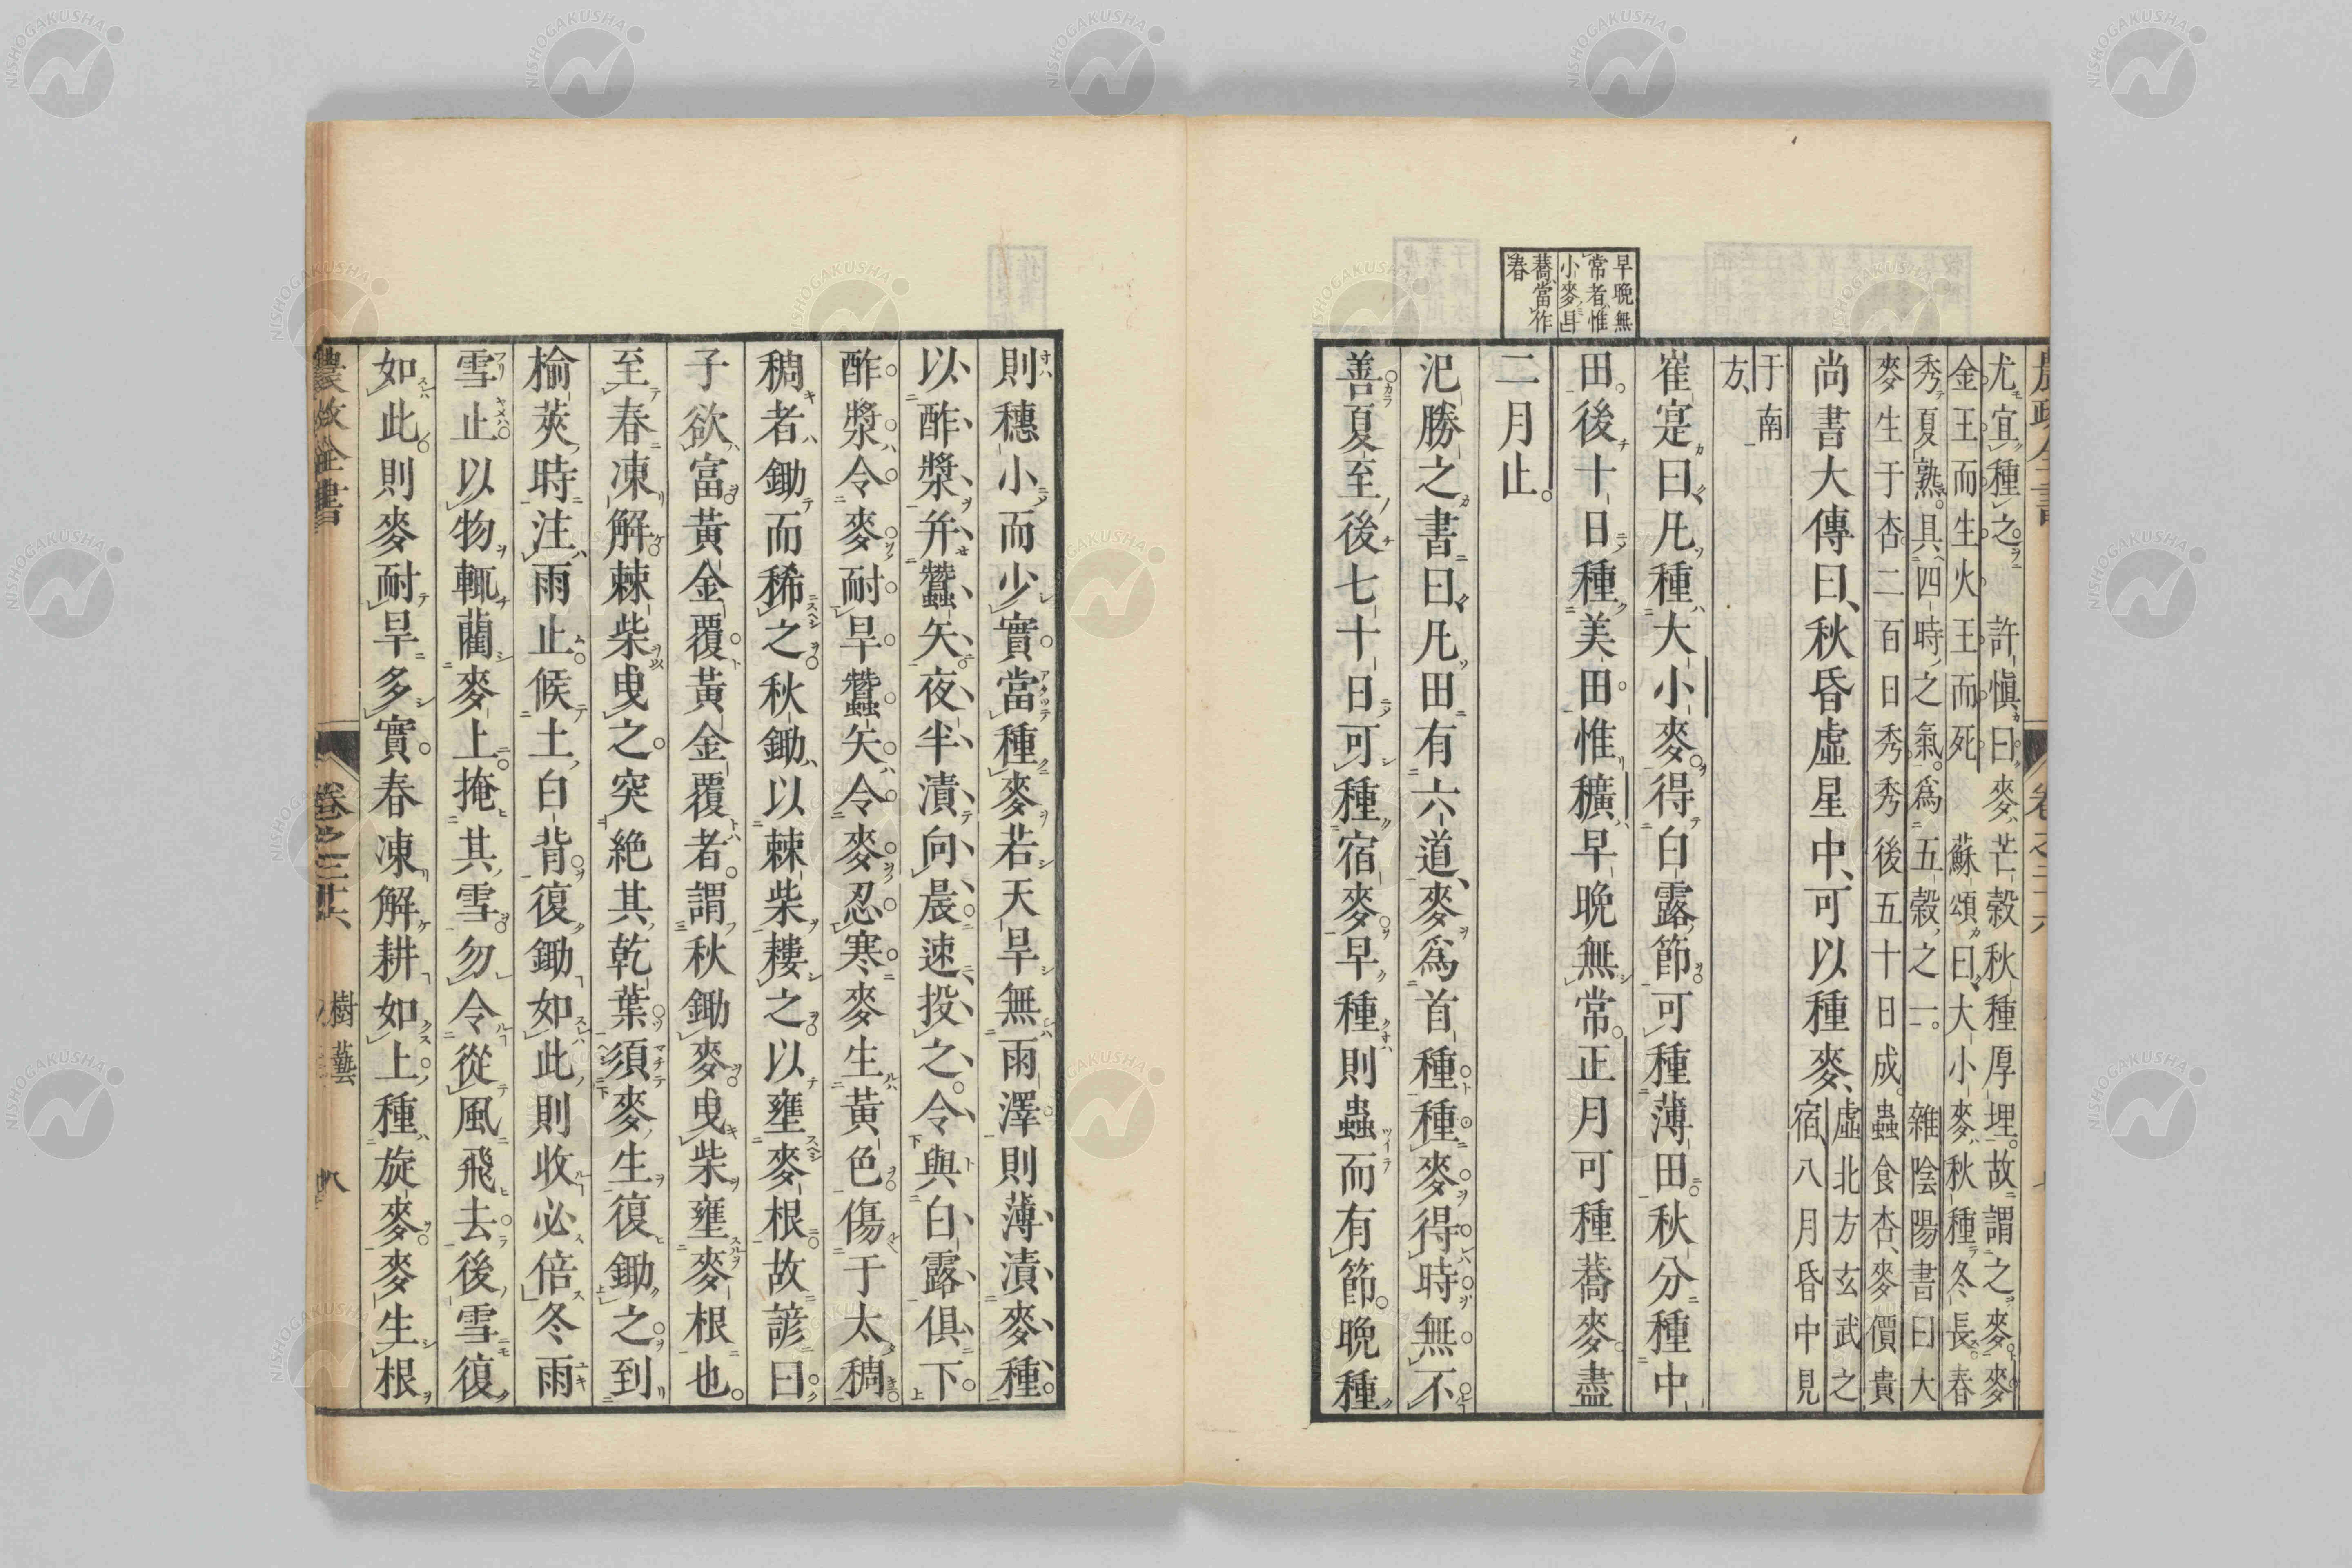 農政全書 卷之二十六
尤宜種之 許慎曰麥芒穀秋種厚埋故謂之麥麥
金王而生火王而死 蘇頌曰大小麥秋種冬長春
秀夏熟具四時之氣爲五穀之一 雜陰陽書曰大
麥生于杏二百日秀秀後五十日成蟲食杏麥價貴
尚書大傳曰秋昏虛星中可以種麥
虛北方玄武之
宿八月昏中見
于南
方
崔寔曰凡種大小麥得白露節可種薄田秋分種中
田後十日種美田惟穬早晚無常正月可種蕎麥盡
二月止
氾勝之書曰凡田有六道麥爲首種種麥得時無不
善夏至後七十日可種宿麥早種則蟲而有節晚種
早晚無
常者惟
小麥耳
蕎當作
春
則穗小而少實當種麥若天旱無雨澤則薄漬麥種
以酢漿并蠶矢夜半漬向晨速投之令與白露俱下
酢漿令麥耐旱蠶矢令麥忍寒麥生黃色傷于太稠
稠者鋤而稀之秋鋤以棘柴耬之以壅麥根故諺曰
子欲富黃金覆黃金覆者謂秋鋤麥曳柴壅麥根也
至春凍解棘柴曳之突絶其乾葉須麥生復鋤之到
榆莢時注雨止候土白背復鋤如此則收必倍冬雨
雪止以物輒藺麥上掩其雪勿令從風飛去後雪復
如此則麥耐旱多實春凍解耕如上種旋麥麥生根
農政全書 樹藝 八
NISHOGAKUSHA